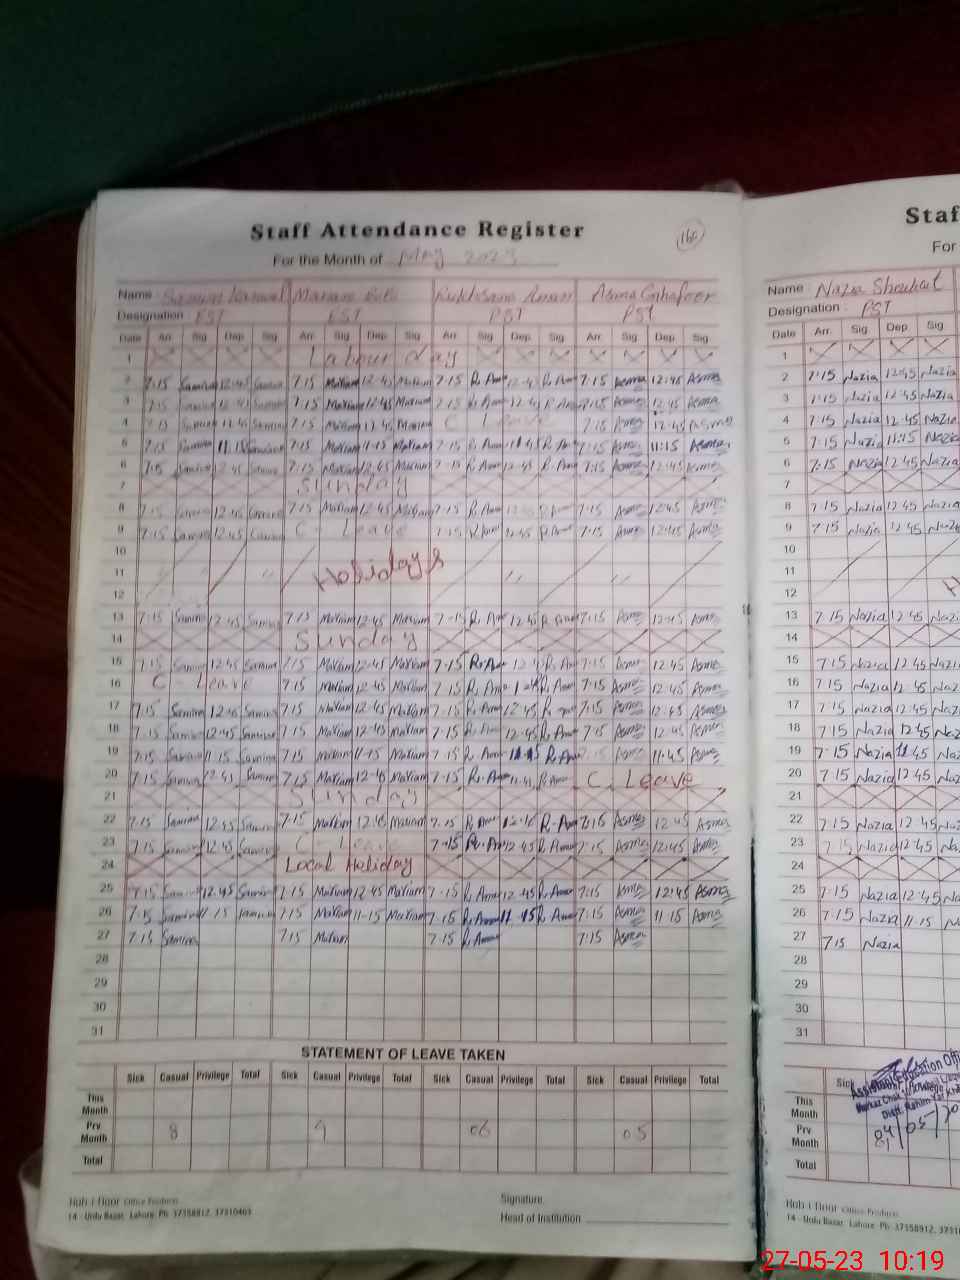 Staff Attendance Register
160
For the Month of May 2023
Name Samina Kanwal Mariam Bibi Rukhsana Anam Asma Ghafoor
Designation EST EST PST PST
Date Arr. Sig. Dep. Sig. Arr. Sig. Dep. Sig. Arr. Sig. Dep. Sig. Arr. Sig. Dep. Sig
1 Labour day
2 7:15 Samina 12:45 Samina 7:15 Mariam 12:45 Mariam 7:15 R. Anam 12:45 R. Anam 7:15 Asma 12:45 Asma
3 7:15 Samina 12:45 Samina 7:15 Mariam 12:45 Mariam 7:15 R. Anam 12:45 R. Anam 7:15 Asma 12:45 Asma
4 7:15 Samina 12:45 Samina 7:15 Mariam 12:45 Mariam C Leave 7:15 Asma 12:45 Asma
5 7:15 Samina 11:15 Samina 7:15 Mariam 11:15 Mariam 7:15 R. Anam 11:45 R. Anam 7:15 Asma 11:15 Asma
6 7:15 Samina 12:45 Samina 7:15 Mariam 12:45 Mariam 7:15 R. Anam 12:45 R. Anam 7:15 Asma 12:45 Asma
7 Sunday
8 7:15 Samina 12:45 Samina 7:15 Mariam 12:45 Mariam 7:15 R. Anam 12:45 R. Anam 7:15 Asma 12:45 Asma
9 7:15 Samina 12:45 Samina C - Leave 7:15 R. Anam 12:45 R. Anam 7:15 Asma 12:45 Asma
10
11 Holidays
12
13 7:15 Samina 12:45 Samina 7:15 Mariam 12:45 Mariam 7:15 R. Anam 12:45 R. Anam 7:15 Asma 12:45 Asma
14 Sunday
15 7:15 Samina 12:45 Samina 7:15 Mariam 12:45 Mariam 7:15 R. Anam 12:45 R. Anam 7:15 Asma 12:45 Asma
16 C - Leave 7:15 Mariam 12:45 Mariam 7:15 R. Anam 12:45 R. Anam 7:15 Asma 12:45 Asma
17 7:15 Samina 12:45 Samina 7:15 Mariam 12:45 Mariam 7:15 R. Anam 12:45 R. Anam 7:15 Asma 12:45 Asma
18 7:15 Samina 12:45 Samina 7:15 Mariam 12:45 Mariam 7:15 R. Anam 12:45 R. Anam 7:15 Asma 12:45 Asma
19 7:15 Samina 11:15 Samina 7:15 Mariam 11:15 Mariam 7:15 R. Anam 11:15 R. Anam 7:15 Asma 11:45 Asma
20 7:15 Samina 12:45 Samina 7:15 Mariam 12:45 Mariam 7:15 R. Anam 12:45 R. Anam C. Leave
21 Sunday
22 7:15 Samina 12:45 Samina 7:15 Mariam 12:45 Mariam 7:15 R. Anam 12:45 R. Anam 7:15 Asma 12:45 Asma
23 7:15 Samina 12:45 Samina C - Leave 7:15 R. Anam 12:45 R. Anam 7:15 Asma 12:45 Asma
24 Local Holiday
25 7:15 Samina 12:45 Samina 7:15 Mariam 12:45 Mariam 7:15 R. Anam 12:45 R. Anam 7:15 Asma 12:45 Asma
26 7:15 Samina 11:15 Samina 7:15 Mariam 11:15 Mariam 7:15 R. Anam 11:15 R. Anam 7:15 Asma 11:15 Asma
27 7:15 Samina 7:15 Mariam 7:15 R. Anam 7:15 Asma
28
29
30
31
STATEMENT OF LEAVE TAKEN
Sick Casual Privilege Total Sick Casual Privilege Total Sick Casual Privilege Total Sick Casual Privilege Total
This Month
Prv Month 8 9 06 05
Total
Signature
Head of Institution
14 - Urdu Bazar, Lahore. Ph: 37358912, 37310463
Staf
For
Name : Nazia Shoukat
Designation : PST
Date Arr. Sig. Dep. Sig
1
2 7:15 Nazia 12:45 Nazia
3 7:15 Nazia 12:45 Nazia
4 7:15 Nazia 12:45 Nazia
5 7:15 Nazia 11:15 Nazia
6 7:15 Nazia 12:45 Nazia
7
8 7:15 Nazia 12:45 Nazia
9 7:15 Nazia 12:45 Nazia
10
11
12
13 7:15 Nazia 12:45 Nazia
14
15 7:15 Nazia 12:45 Nazi
16 7:15 Nazia 12:45 Nazi
17 7:15 Nazia 12:45 Naz
18 7:15 Nazia 12:45 Naz
19 7:15 Nazia 11:45 Naz
20 7:15 Nazia 12:45 Naz
21
22 7:15 Nazia 12:45 Naz
23 7:15 Nazia 12:45 Na
24
25 7:15 Nazia 12:45 Na
26 7:15 Nazia 11:15 N
27 7:15 Nazia
28
29
30
31
Sick
Assistant Education Offi
This Month
Prv Month
Total
14 - Urdu Bazar, Lahore. Ph: 373589
27-05-23 10:19